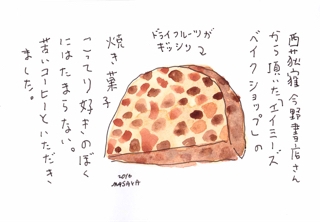 西荻窪 今野書店さん
から頂いたエイミーズ
ベイクショップの
ドライフルーツが
ギッシリ
焼き菓子
こってり好きのぼく
にはたまらない。
苦いコーヒーといただき
ました。
2010
MASAYA